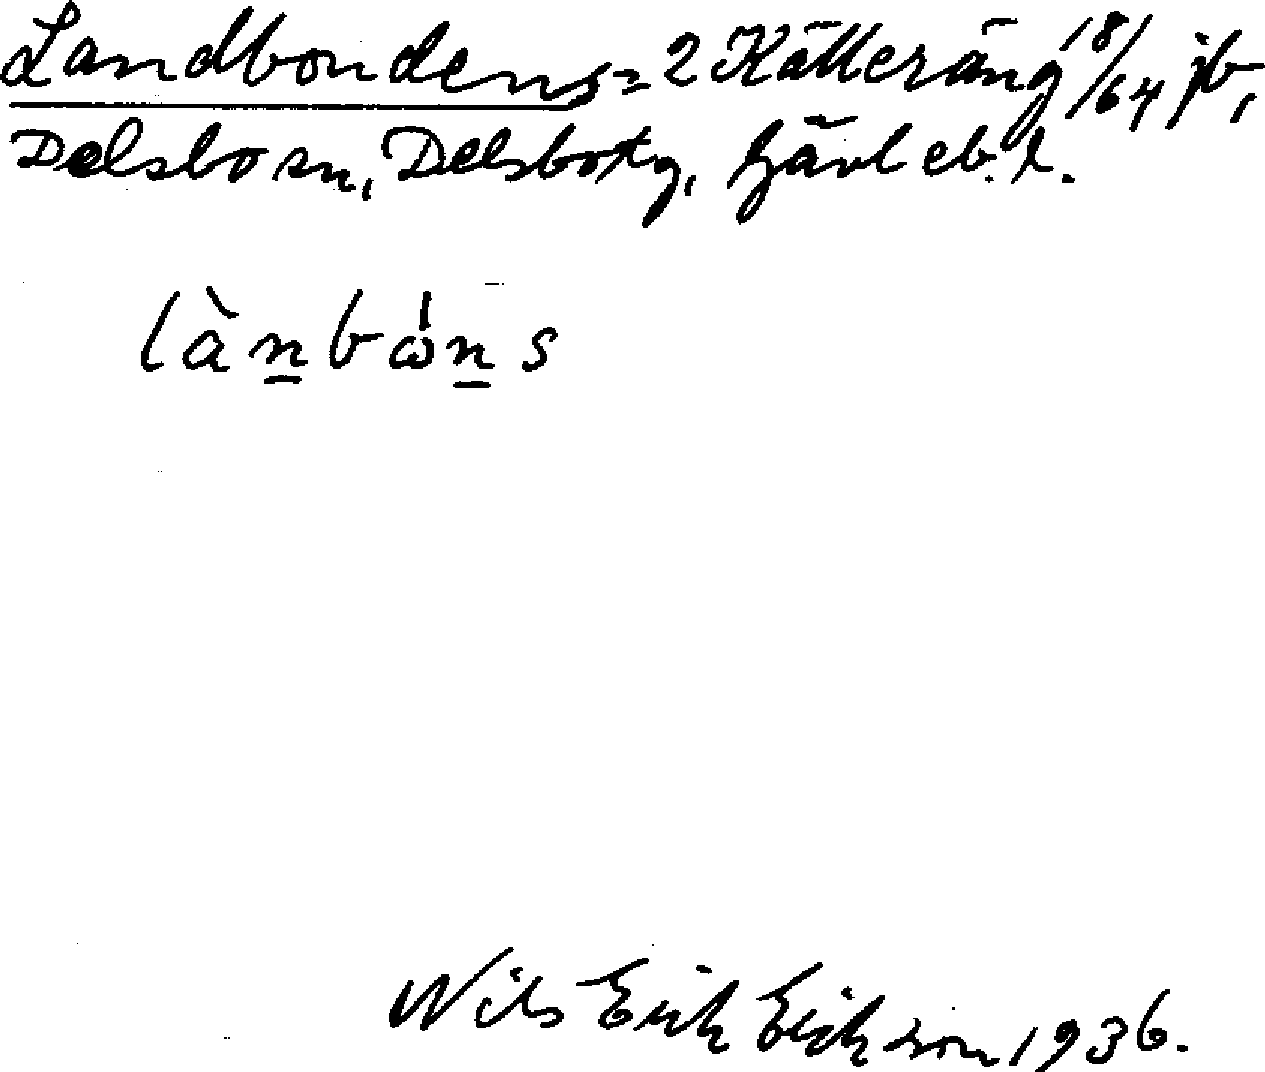 Landbondens = 2 Källeräng 18/64 jb,
Delsbo sn, Delsbo tg, Gävleb. l.
làn̲bώn̲s
Nils Erik Erikson 1936.